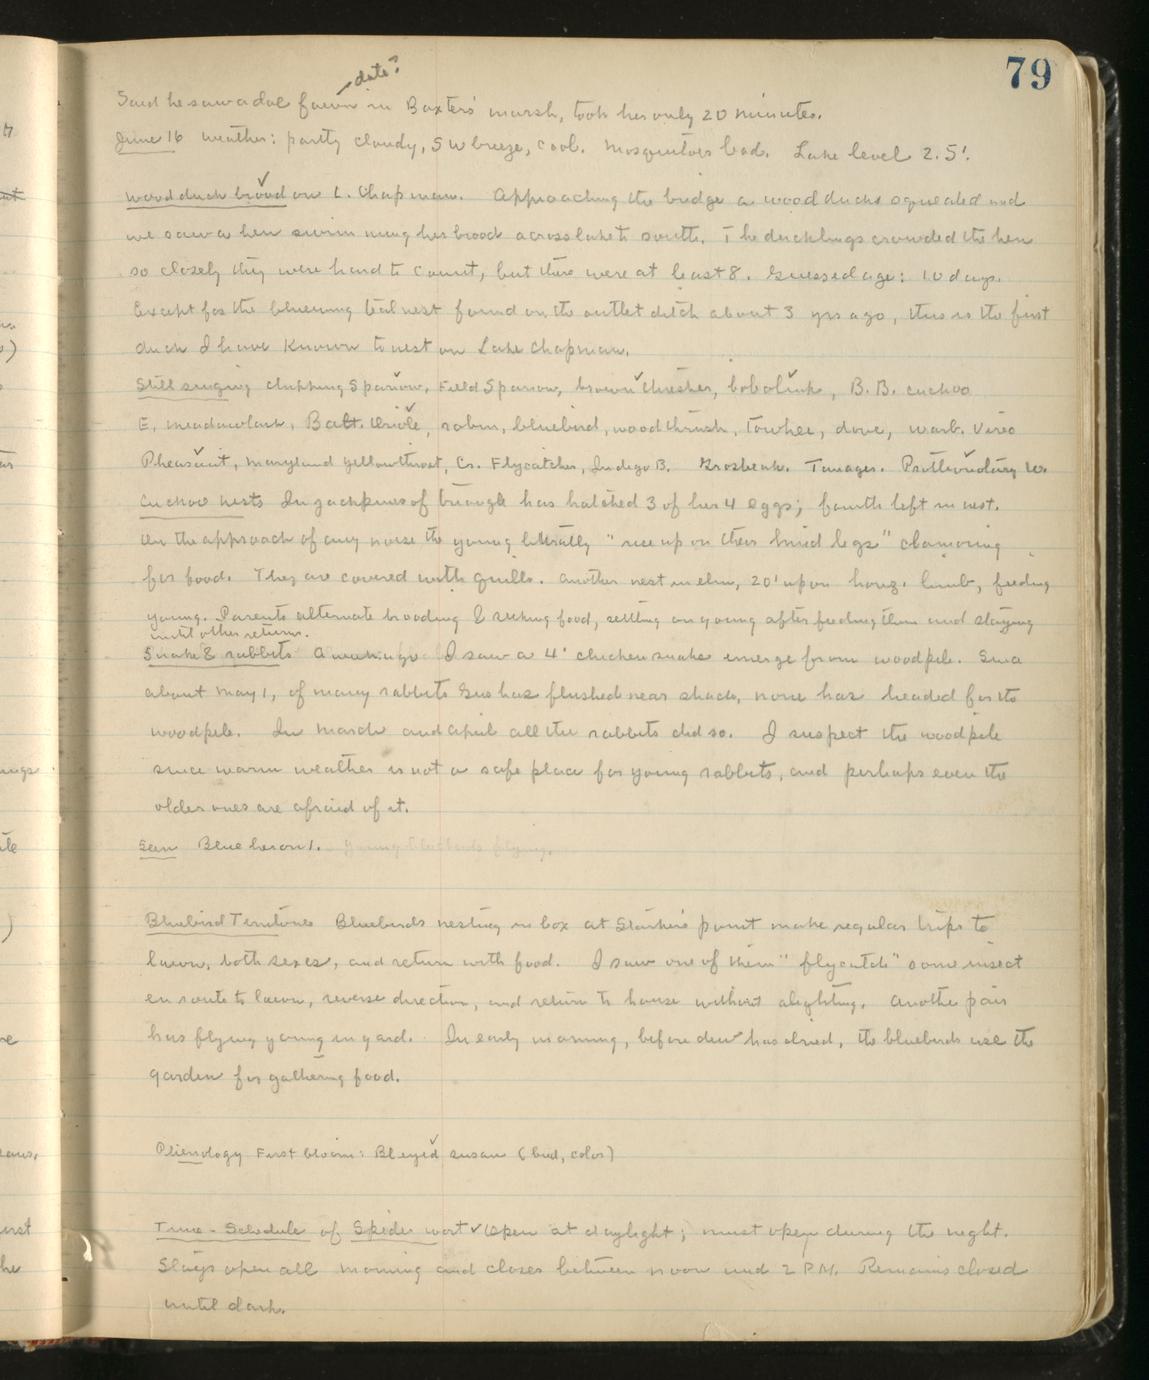 79
date?
Said he saw a doe fawn in Baxters' marsh, took her only 20 minutes.
June 16 weather: partly cloudy, SW breeze, cool. Mosquitoes bad. Lake level 2.5'.
Wood duck brood on L. Chapman. Approaching the bridge a wood duck squealed and
we saw a hen swimming her brood across lake to south. The ducklings crowded the hen
so closely they were hard to count, but there were at least 8. Guessed age: 10 days.
Except for the bluewing teal nest found on the outlet ditch about 3 yrs ago, this is the first
duck I have known to nest on Lake Chapman.
Still singing chipping Sparrow, Field Sparrow, brown thrasher, bobolink, B.B. cuckoo
E. meadowlark, Balt. Oriole, robin, bluebird, wood thrush, Towhee, dove, warb. Vireo
Pheasant, Maryland yellowthroat, Cr. Flycatcher, Indigo B. Grosbeak. Tanager. Prothonotary W.
Cuckoo nests In jackpines of triangle has hatched 3 of her 4 eggs; fourth left in nest.
On the approach of any noise the young literally "rise up on their hind legs" clamoring
for food. They are covered with quills. Another nest in elm, 20' up on horiz. limb, feeding
young. Parents alternate brooding & seeking food, settling on young after feeding them and staying
until other returns.
Snake & rabbits A week ago I saw a 4' chicken snake emerge from woodpile. Since
about May 1, of many rabbits Gus has flushed near shack, none has headed for the
woodpile. In March and April all the rabbits did so. I suspect the woodpile
since warm weather is not a safe place for young rabbits, and perhaps even the
older ones are afraid of it.
Seen Blue heron 1. young bluebirds flying.
Bluebird Territories Bluebirds nesting in box at Starker's point make regular trips to
lawn, both sexes, and return with food. I saw one of them "flycatch" some insect
en route to lawn, reverse direction, and return to house without alighting. Another pair
has flying young in yard. In early morning, before dew has dried, the bluebirds use the
garden for gathering food.
Phenology First bloom: Bleyed susan (bud, color)
Time-Schedule of Spiderwort Open at daylight; must open during the night.
Stays open all morning and closes between noon and 2 PM. Remains closed
until dark.